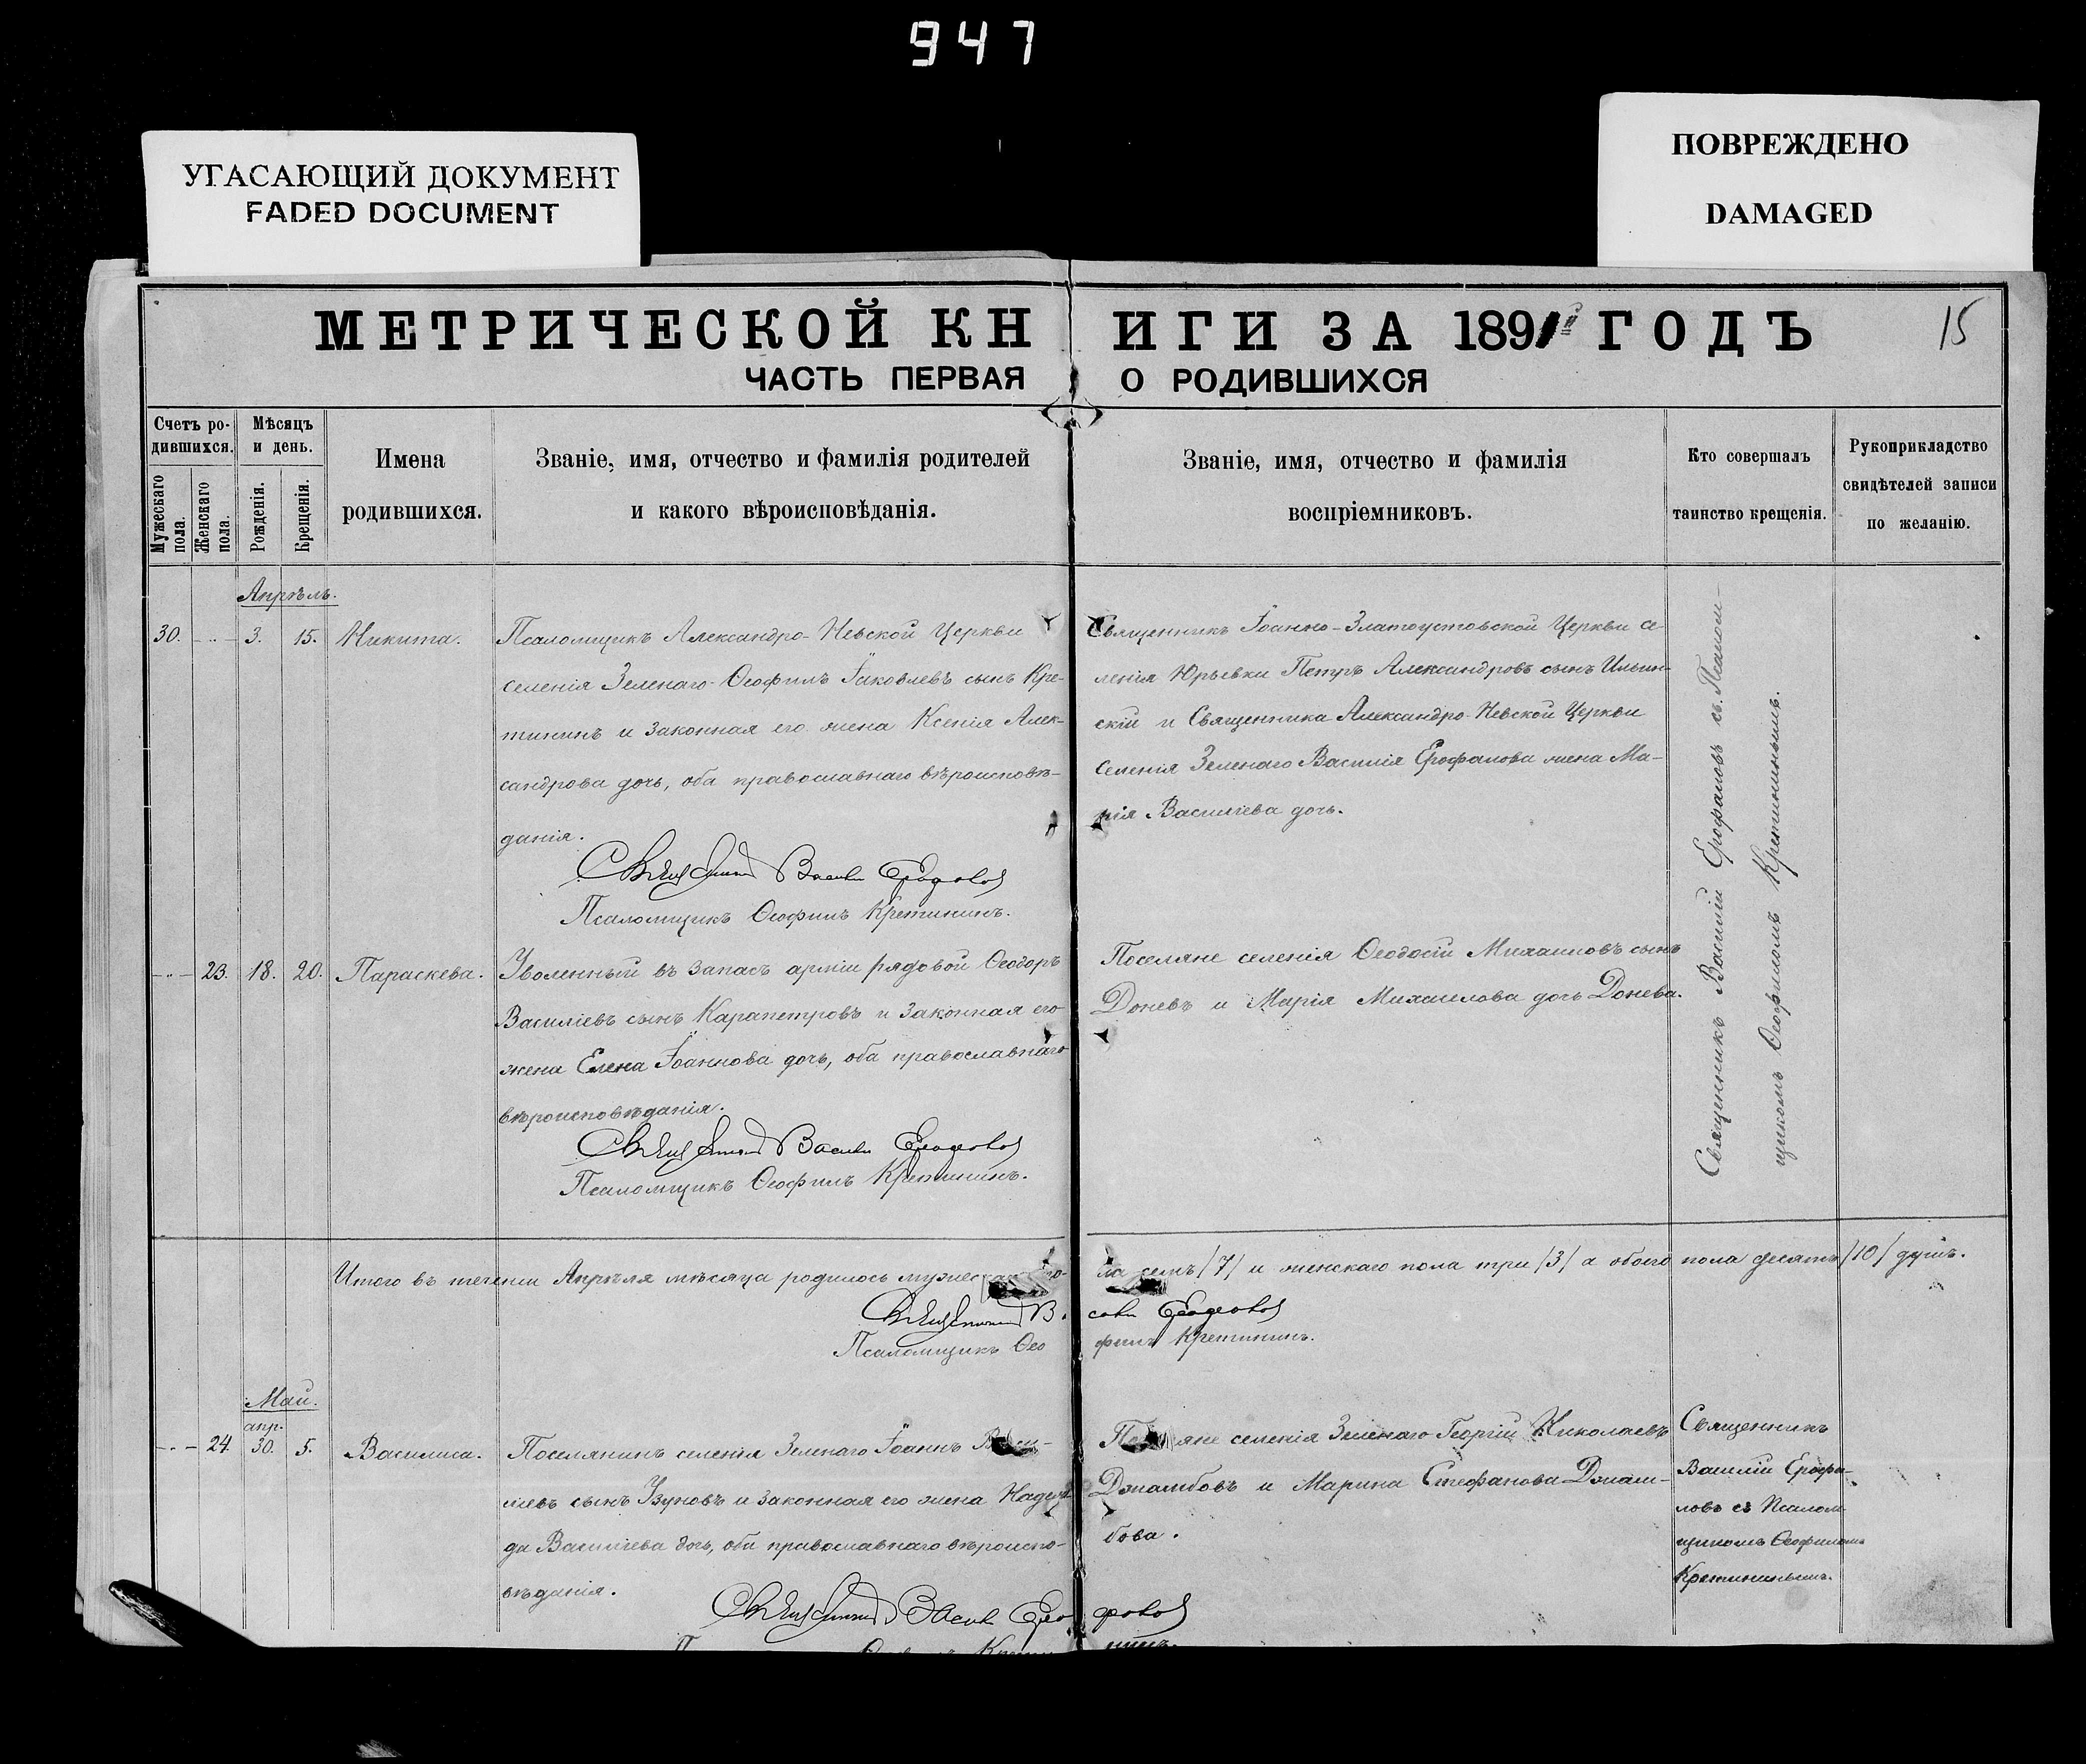 947
УГАСАЮЩИЙ ДОКУМЕНТ
FADED DOCUMENT
ПОВРЕЖДЕНО
DAMAGED
МЕТРИЧЕСКОЙ КНИГИ ЗА 1891й ГОДЪ
15
ЧАСТЬ ПЕРВАЯ О РОДИВШИХСЯ
Счетъ ро-
дившихся.
Мужескаго пола.
Женскаго пола.
Мѣсяцъ
и день.
Рожденія.
Крещенія.
Имена
родившихся.
Званіе, имя, отчество и фамилія родителей
и какого вѣроисповѣданія.
Званіе, имя, отчество и фамилія
воспріемниковъ.
Кто совершалъ
таинство крещенія.
Рукоприкладство
свидѣтелей записи
по желанію.
Апрѣль.
30. - " - 3. 15. Никита.
Псаломщикъ Александро-Невской Церкви
селенія Зеленаго Ѳеофилъ Іаковлевъ сынъ Кре-
тининъ и законная его жена Ксенія Алек-
сандрова дочь, оба православнаго вѣроисповѣ-
данія.
Священникъ Василій Ерофаловъ
Псаломщикъ Ѳеофилъ Кретининъ.
Священникъ Іоанно-Златоустовской Церкви се-
ленія Юрьевки Петръ Александровъ сынъ Ильин-
скій и Священника Александро-Невской Церкви
селенія Зеленаго Василія Ерофалова жена Ма-
рія Василіева дочь.
Священникъ Василій Ерофаловъ съ Псалом-
щикомъ Ѳеофиломъ Кретининымъ.
- " - 23. 18. 20. Параскева.
Уволенный въ запасъ арміи рядовой Ѳеодоръ
Василіевъ сынъ Карапетровъ и законная его
жена Елена Іоаннова дочь, оба православнаго
вѣроисповѣданія.
Священникъ Василій Ерофаловъ
Псаломщикъ Ѳеофилъ Кретининъ.
Поселяне селенія Ѳеодосій Михаиловъ сынъ
Доневъ и Марія Михаилова дочь Донева.
Итого въ теченіи Апрѣля мѣсяца родилось мужескаго по-
ла семь /7/ и женскаго пола три /3/ а обоего пола десять /10/ душъ.
Священникъ Василій Ерофаловъ
Псаломщикъ Ѳеофилъ Кретининъ.
Май.
апр.
- " - 24. 30. 5. Василиса.
Поселянинъ селенія Зеленаго Іоаннъ
сынъ Узуновъ и законная его жена Надеж-
да Василіева дочь, оба православнаго вѣроиспо-
вѣданія.
Священникъ Василій Ерофаловъ
Поселяне селенія Зеленаго Георгій Николаевъ
Джамбовъ и Марина Стефанова Джам-
бова.
Священникъ
Василій Ерофа-
ловъ съ Псалом-
щикомъ Ѳеофиломъ
Кретининымъ.